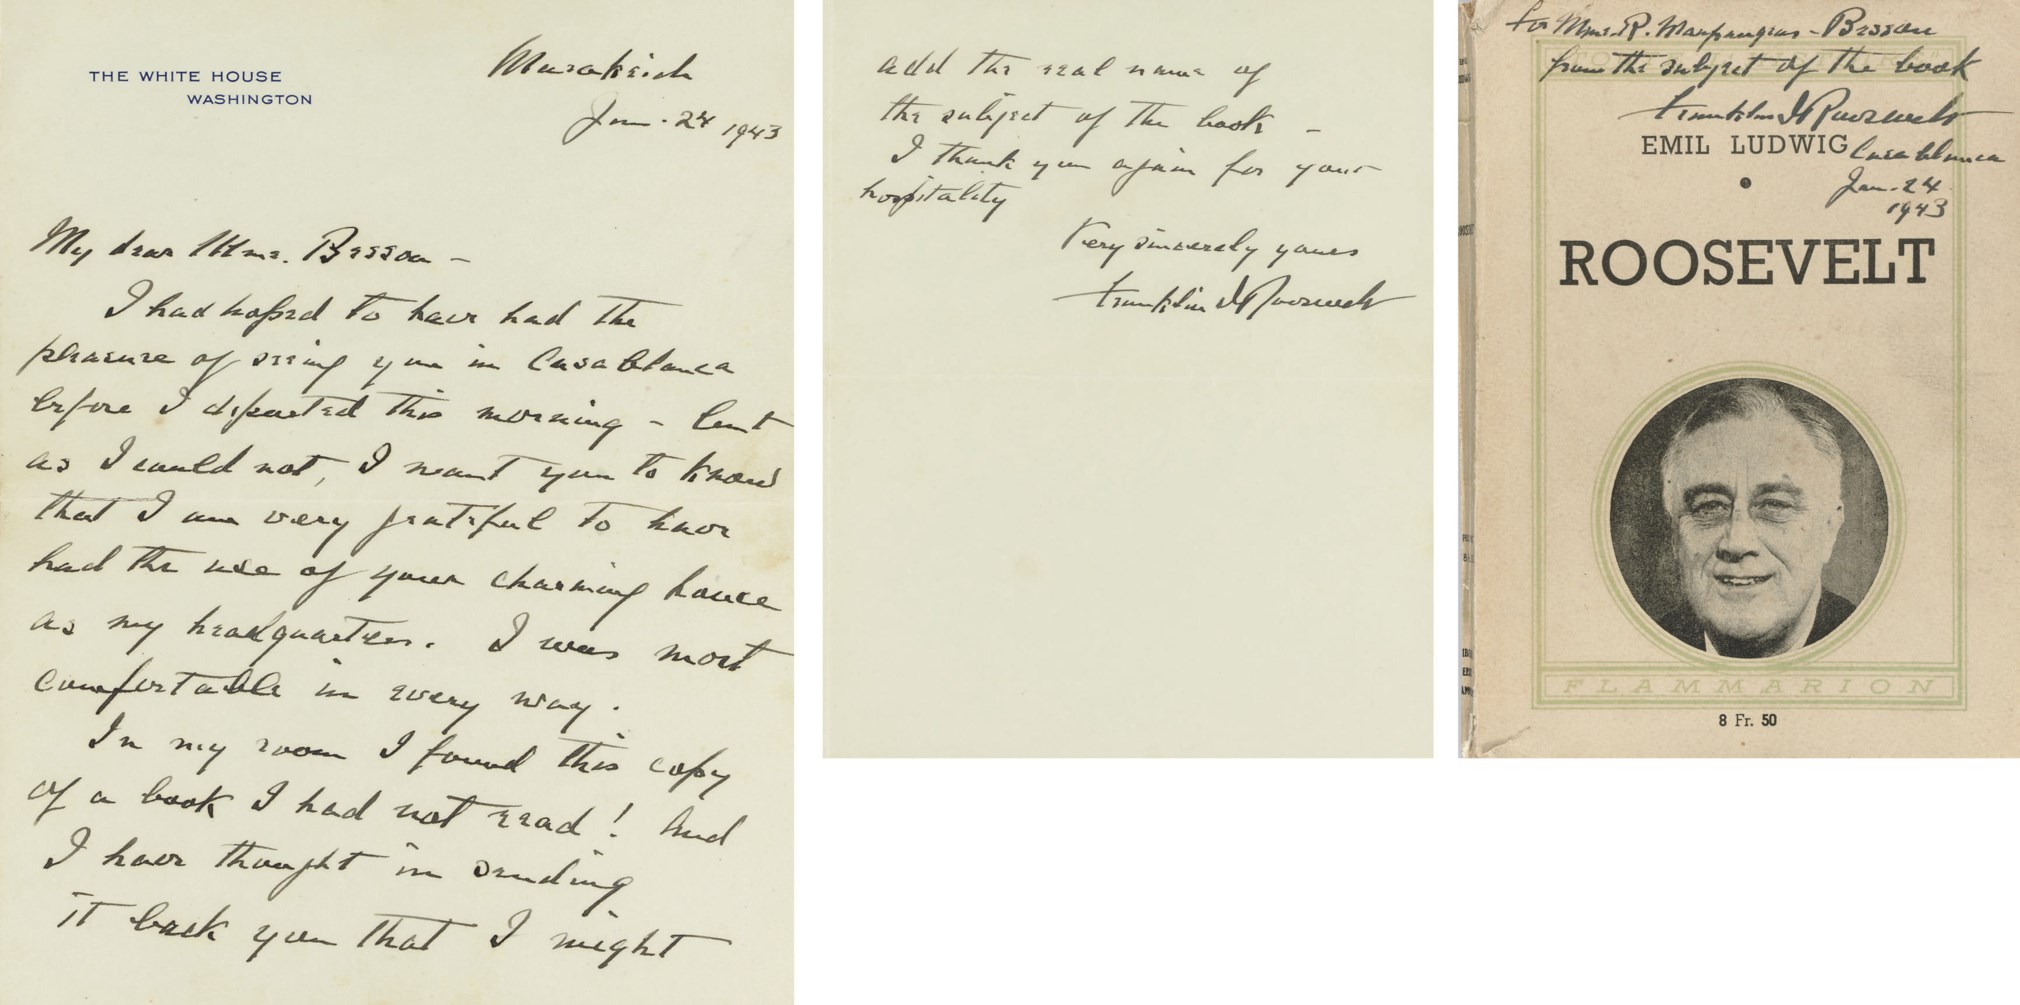 THE WHITE HOUSE
WASHINGTON
Marakeich
Jan. 24 1943
My dear Mme. Besson –
I had hoped to have had the
pleasure of seeing you in Casablanca
before I departed this morning – but
as I could not, I want you to know
that I am very grateful to have
had the use of your charming house
as my headquarters. I was most
comfortable in every way.
In my room I found this copy
of a book I had not read! And
I have thought in sending
it back you that I might
add the real name of
the subject of the book –
I thank you again for your
hospitality
Very sincerely yours
Franklin D Roosevelt
For Mme. R. - Besson
from the subject of the book
Franklin D Roosevelt
EMIL LUDWIG
Casablanca
Jan. 24
1943
ROOSEVELT
FLAMMARION
8 Fr. 50